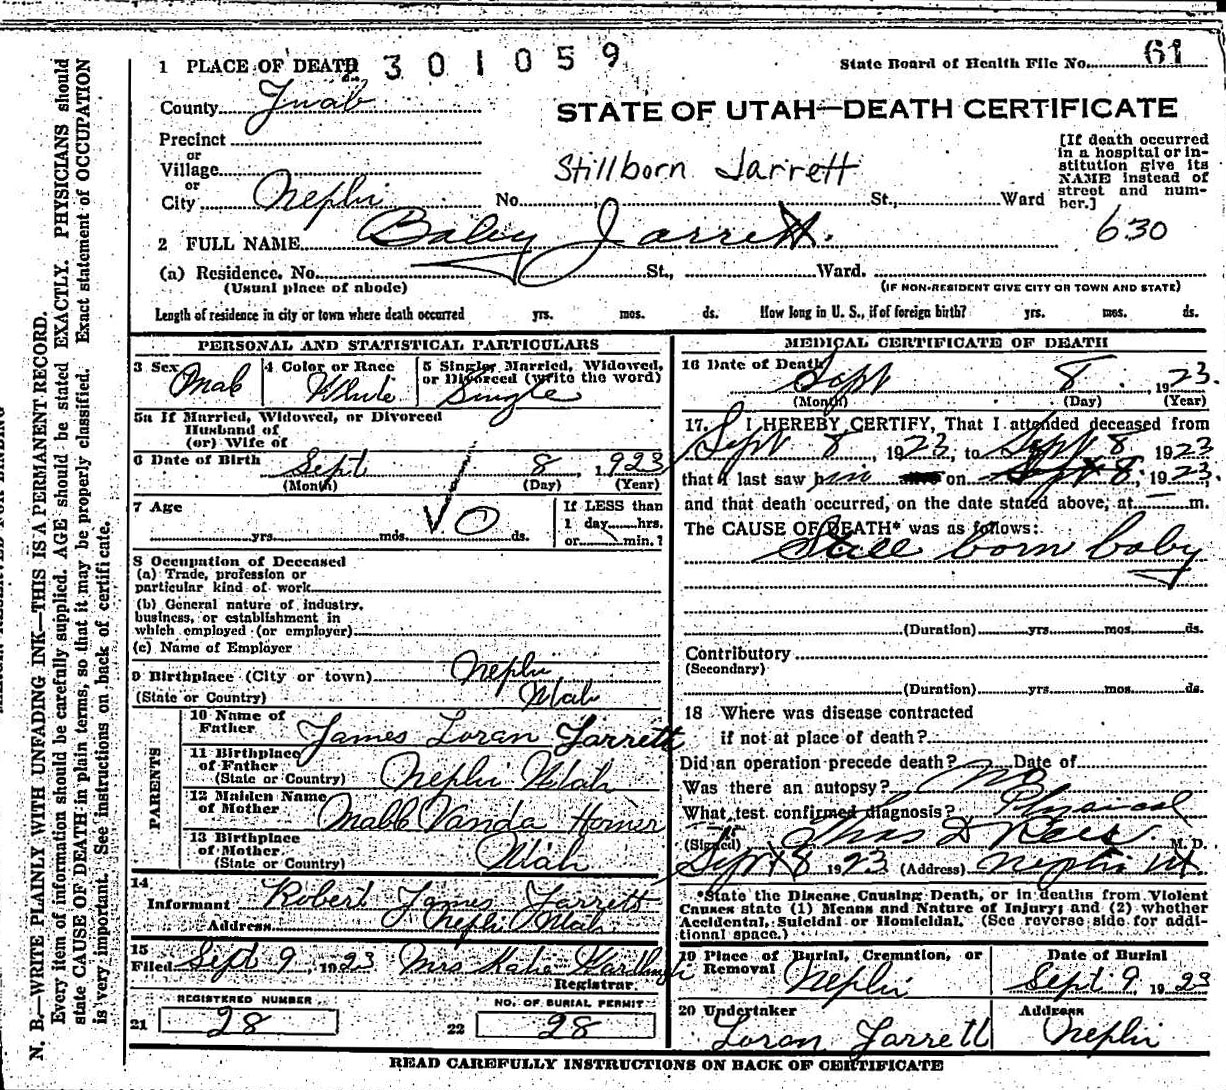 1 PLACE OF DEATH
301059
State Board of Health File No. 61
County Juab
STATE OF UTAH—DEATH CERTIFICATE
Precinct
or
Village
or
City Nephi
Stillborn Jarrett
No. St., Ward
[If death occurred
in a hospital or in-
stitution give its
NAME instead of
street and num-
ber.]
630
2 FULL NAME Baby Jarrett.
(a) Residence. No. St., Ward.
(Usual place of abode)
(IF NON-RESIDENT GIVE CITY OR TOWN AND STATE)
Length of residence in city or town where death occurred yrs. mos. ds. How long in U. S., if of foreign birth? yrs. mos. ds.
PERSONAL AND STATISTICAL PARTICULARS
3 Sex Male
4 Color or Race White
5 Single, Married, Widowed,
or Divorced (write the word)
Single
5a If Married, Widowed, or Divorced
Husband of
(or) Wife of
6 Date of Birth Sept 8, 1923
(Month) (Day) (Year)
7 Age
yrs. mos. 0 ds.
If LESS than
1 day hrs.
or min.?
8 Occupation of Deceased
(a) Trade, profession or
particular kind of work
(b) General nature of industry,
business, or establishment in
which employed (or employer)
(c) Name of Employer
9 Birthplace (City or town) Nephi
(State or Country) Utah
PARENTS
10 Name of
Father James Loran Jarrett
11 Birthplace
of Father
(State or Country) Nephi Utah
12 Maiden Name
of Mother Mabl Vanda Horner
13 Birthplace
of Mother
(State or Country) Utah
14
Informant Robert James Jarrett
Address Nephi Utah
15
Filed Sept 9, 1923 Mrs Katie
Registrar.
REGISTERED NUMBER
21 28
NO. OF BURIAL PERMIT
22 28
MEDICAL CERTIFICATE OF DEATH
16 Date of Death Sept 8. 1923.
(Month) (Day) (Year)
17. I HEREBY CERTIFY, That I attended deceased from
Sept 8, 1923, to Sept 8 1923
that I last saw him on Sept 8, 1923.
and that death occurred, on the date stated above, at m.
The CAUSE OF DEATH* was as follows:
Still born baby
(Duration) yrs. mos. ds.
Contributory
(Secondary)
(Duration) yrs. mos. ds.
18 Where was disease contracted
if not at place of death?
Did an operation precede death? Date of
Was there an autopsy? No
What test confirmed diagnosis? Physical
(Signed) Thos D Rees M. D.
Sept 8 1923 (Address) Nephi Ut.
*State the Disease Causing Death, or in deaths from Violent
Causes state (1) Means and Nature of Injury; and (2) whether
Accidental, Suicidal or Homicidal. (See reverse side for addi-
tional space.)
19 Place of Burial, Cremation, or
Removal Nephi
Date of Burial
Sept 9 1923
20 Undertaker
Loran Jarrett
Address
Nephi
READ CAREFULLY INSTRUCTIONS ON BACK OF CERTIFICATE
N. B.—WRITE PLAINLY WITH UNFADING INK—THIS IS A PERMANENT RECORD.
Every item of information should be carefully supplied. AGE should be stated EXACTLY. PHYSICIANS should
state CAUSE OF DEATH in plain terms, so that it may be properly classified. Exact statement of OCCUPATION
is very important. See instructions on back of certificate.